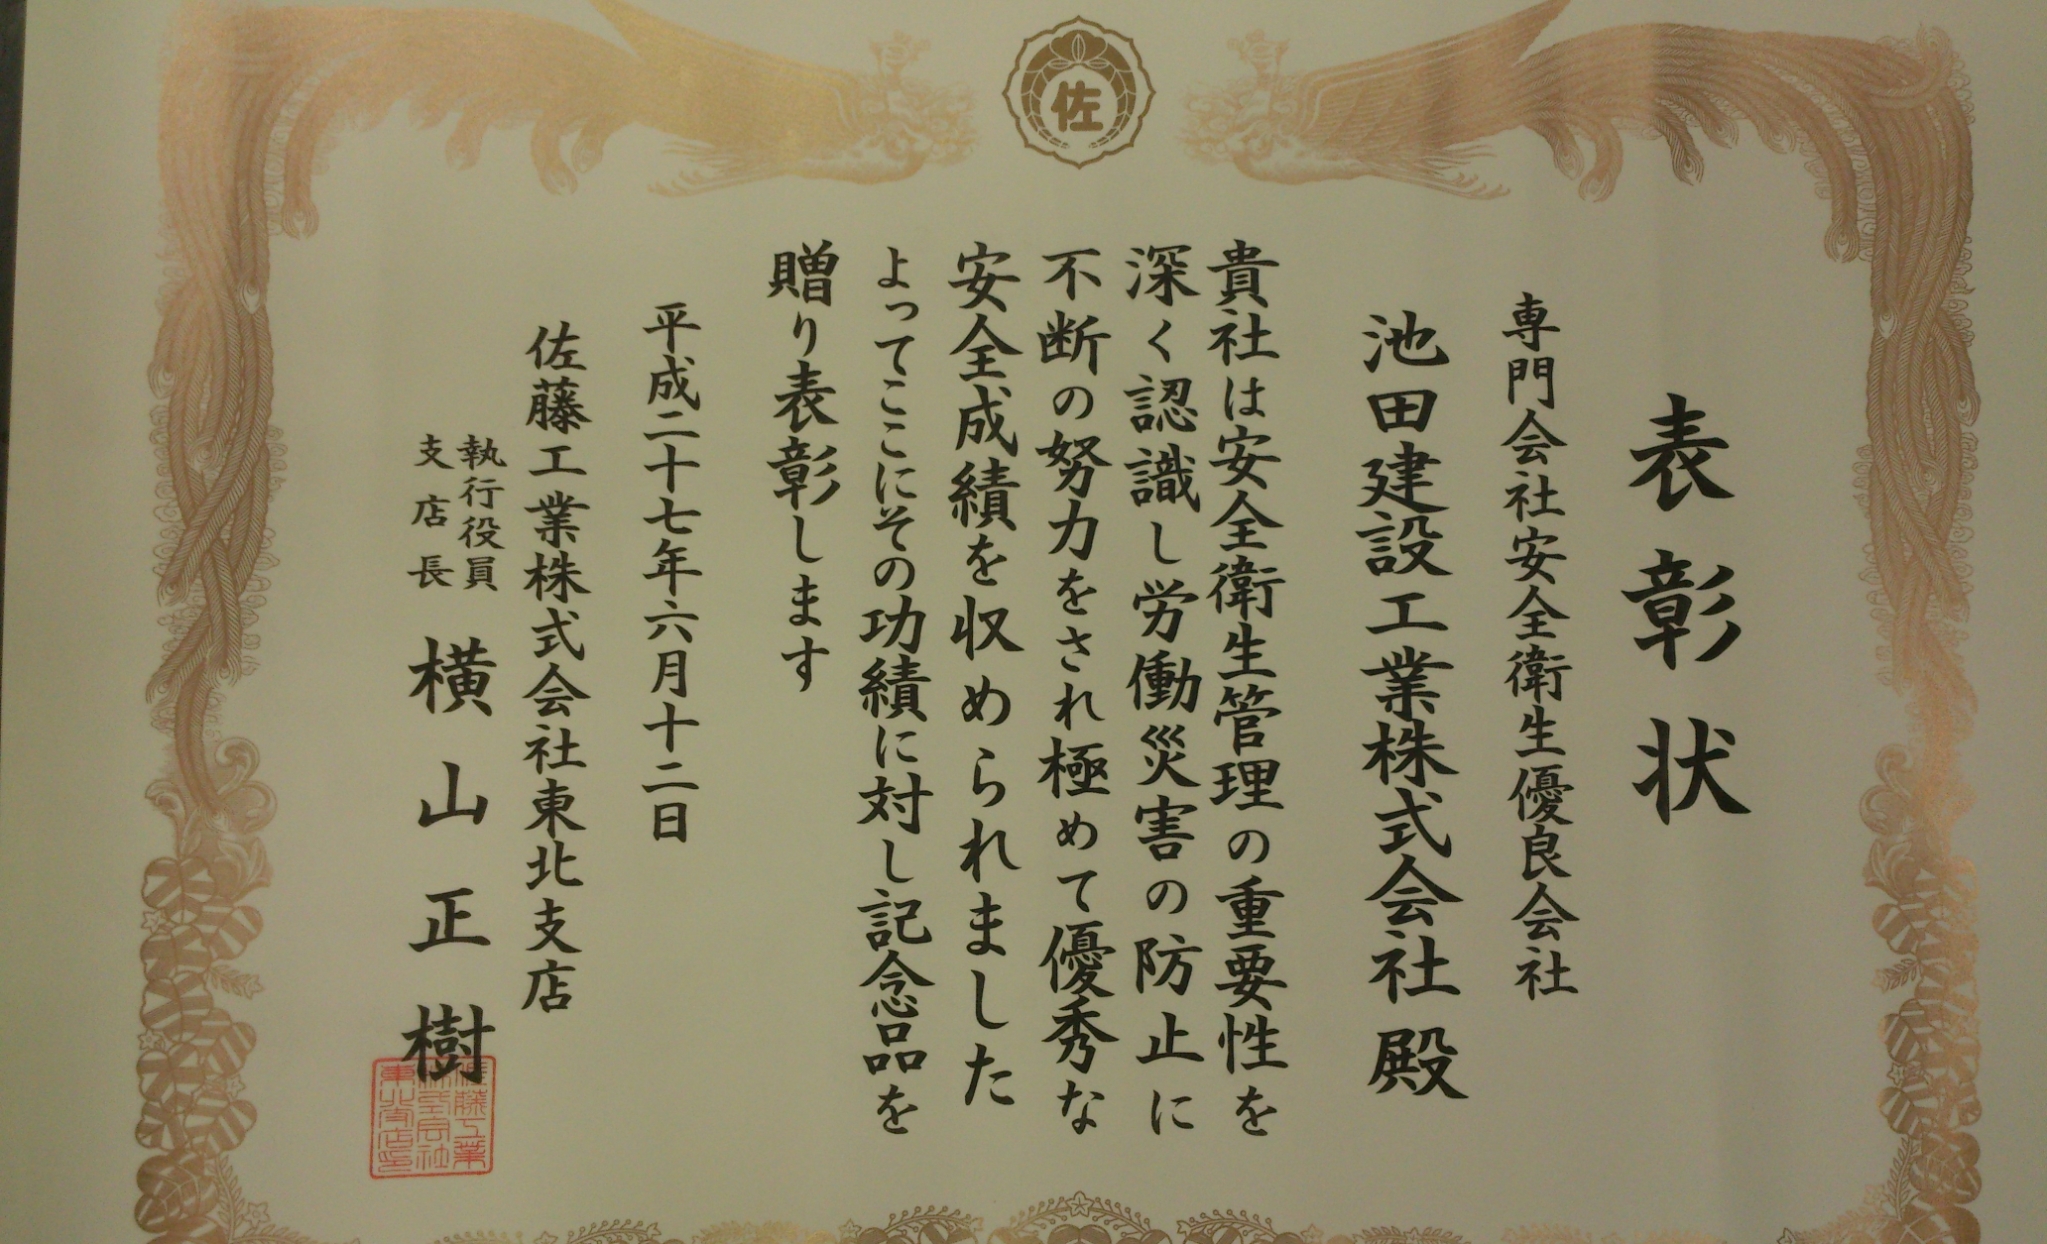 佐
表彰状
専門会社安全衛生優良会社
池田建設工業株式会社殿
貴社は安全衛生管理の重要性を
深く認識し労働災害の防止に
不断の努力をされ極めて優秀な
安全成績を収められました
よってここにその功績に対し記念品を
贈り表彰します
平成二十七年六月十二日
佐藤工業株式会社東北支店
執行役員
支店長
横山正樹
佐藤工業
株式会社
東北支店印